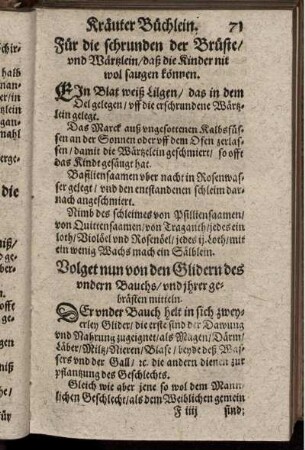 Kräuter Büchlein. 71
Für die schrunden der Brüste/
vnd Wärtzlein/daß die Kinder nit
wol saugen können.
EIn Blat weiß Lilgen/ das in dem
Oel gelegen/ vff die erschrundene Wärtz-
lein gelegt.
Das Marck auß vngesottenen Kalbsfüs-
sen an der Sonnen oder vff dem Ofen zerlas-
sen/damit die Wärtzlein geschmiert/ so offt
das Kindt gesängt hat.
Basiliensaamen vber nacht in Rosenwas-
ser gelegt/ vnd den enestandenen schleim dar-
nach angeschmiert.
Nimb des schleimes von Psilliensaamen/
von Quittensaamen/von Traganth/jedes ein
loth/Violöel vnd Rosenöel/jedes ij. loth/mit
ein wenig Wachs mach ein Sälblein.
Volget nun von den Glidern des
vndern Bauchs/ vnd jhrer ge-
brästen mitteln.
DEr vnder Bauch helt in sich zwey-
erley Glider/ die erste sind der Dawung
vnd Nahrung zugeeignet/als Magen/Därm/
Läber/Miltz/Nieren/Blase/ beyde deß Was-
sers vnd der Gall/ ꝛc. die andern dienen zur
pflantzung des Geschlechts.
Gleich wie aber jene so wol dem Mann-
lichen Geschlecht/als dem Weiblichen gemein
F iiij sind;